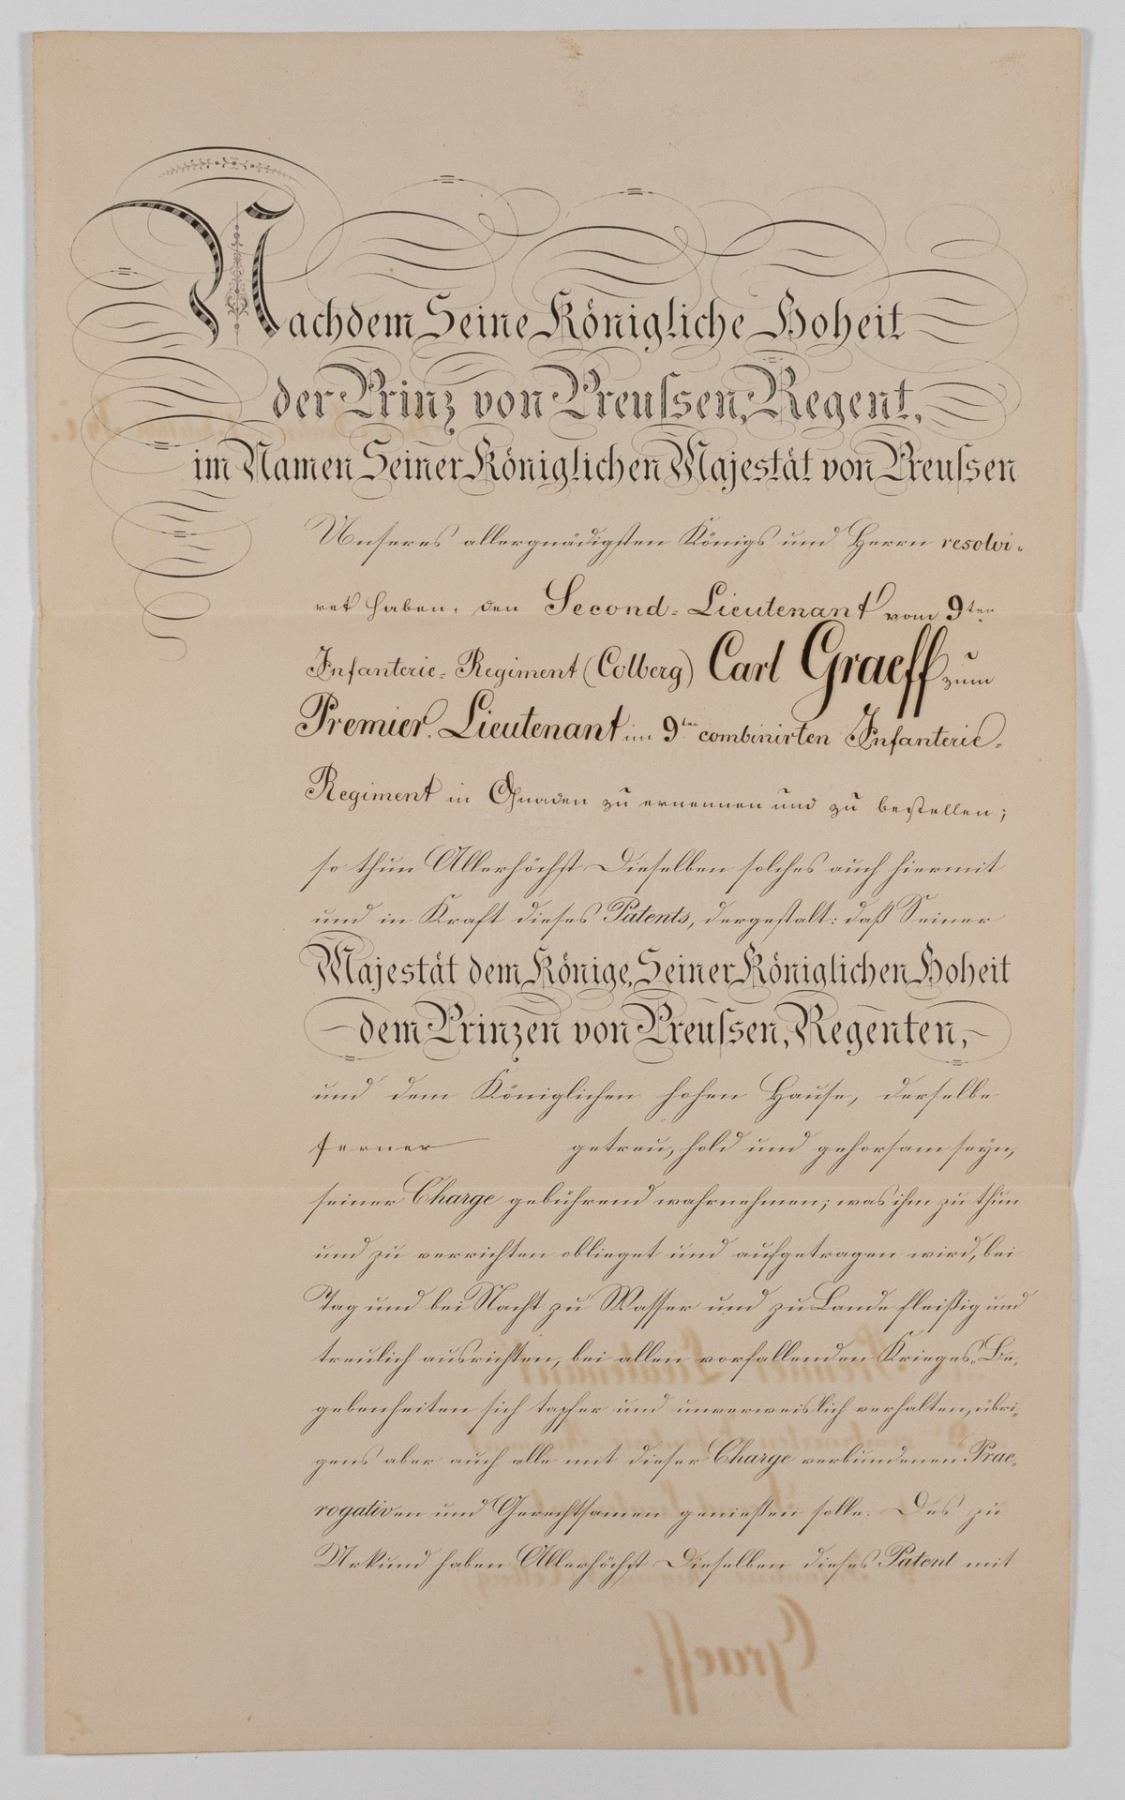 Nachdem Seine Königliche Hoheit
der Prinz von Preuſsen, Regent,
im Namen Seiner Königlichen Majestät von Preuſsen
Unseres allergnädigsten Königs und Herrn resolvi-
ret haben, den Second-Lieutenant vom 9ten
Infanterie-Regiment (Colberg) Carl Graeff zum
Premier-Lieutenant im 9ten combinirten Infanterie-
Regiment in Gnaden zu ernennen und zu bestellen;
so thun Allerhöchst Dieselben solches auch hiermit
und in Kraft dieses Patents, dergestalt: daß Seiner
Majestät dem Könige, Seiner Königlichen Hoheit
dem Prinzen von Preuſsen, Regenten,
und dem Königlichen hohen Hause, derselbe
ferner getreu, hold und gehorsam seyn,
seiner Charge gebührend wahrnehmen; was ihm zu thun
und zu verrichten oblieget und aufgetragen wird, bei
Tag und bei Nacht zu Wasser und zu Lande fleißig und
treulich ausrichten, bei allen vorfallenden Krieges-Be-
gebenheiten sich tapfer und unverweislich verhalten, übri-
gens aber auch alle mit dieser Charge verbundenen Prae-
rogativen und Gerechtsamen genießen solle. Des zu
Urkund haben Allerhöchst Dieselben dieses Patent mit
Graeff.